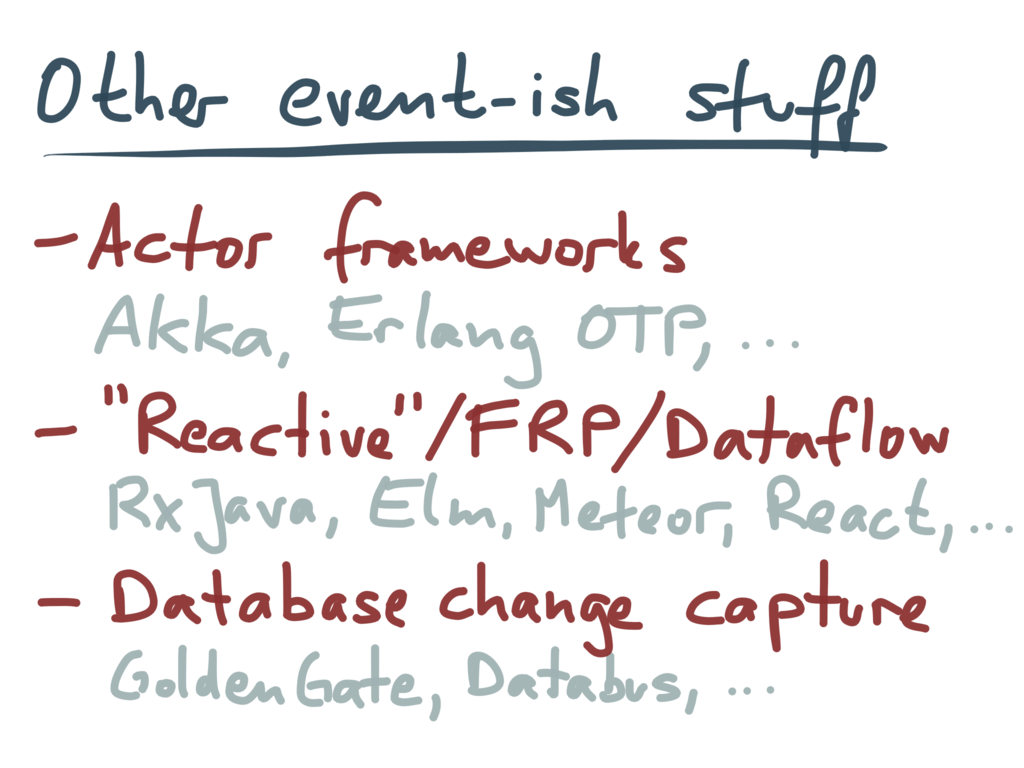 Other event-ish stuff
- Actor frameworks
Akka, Erlang OTP, ...
- "Reactive"/FRP/Dataflow
RxJava, Elm, Meteor, React, ...
- Database change capture
GoldenGate, Databus, ...